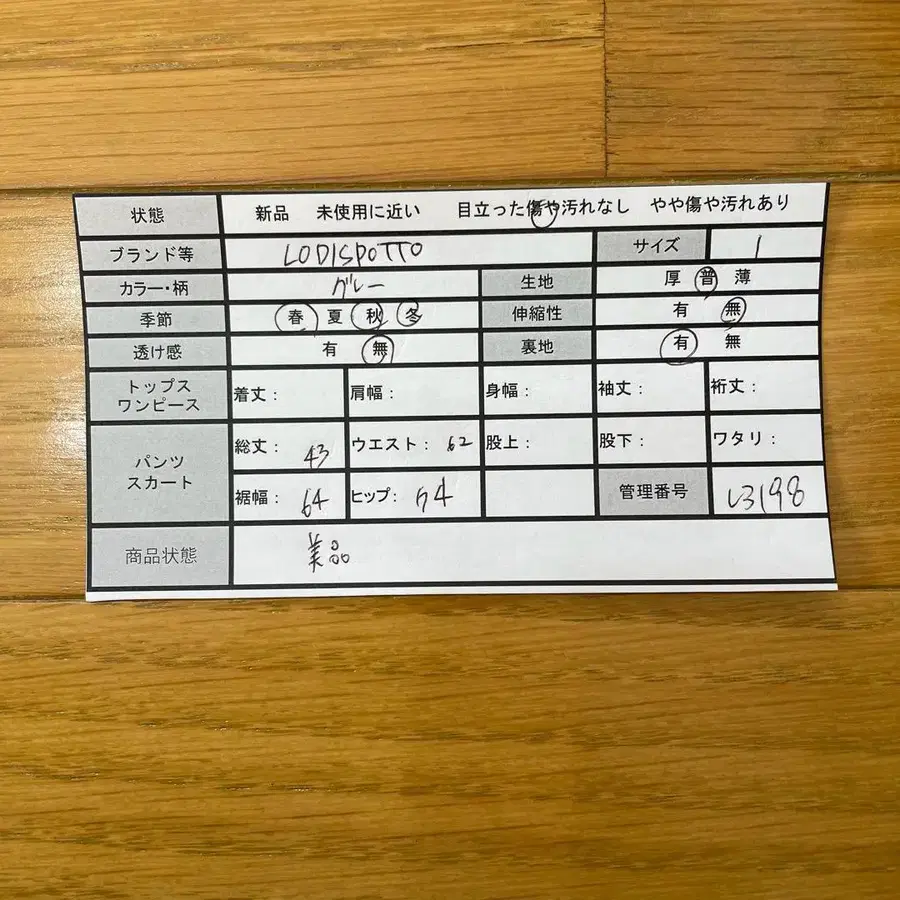 状態 新品 未使用に近い 目立った傷や汚れなし やや傷や汚れあり
ブランド等 LODISPOTTO サイズ 1
カラー・柄 グレー 生地 厚 普 薄
季節 春 夏 秋 冬 伸縮性 有 無
透け感 有 無 裏地 有 無
トップス ワンピース 着丈: 肩幅: 身幅: 袖丈: 裄丈:
パンツ スカート 総丈: 43 ウエスト: 62 股上: 股下: ワタリ:
裾幅: 64 ヒップ: 管理番号 し3198
商品状態 美品